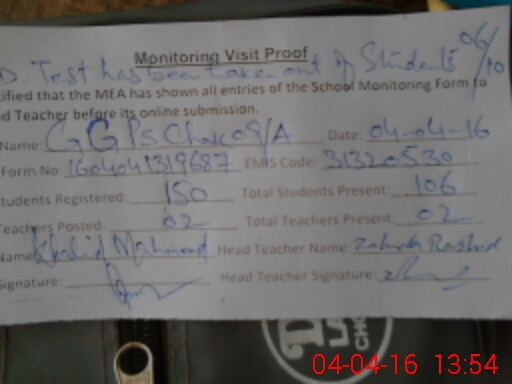 Monitoring Visit Proof
D. Test has been taken out of Students 06/10
tified that the MEA has shown all entries of the School Monitoring Form to
ad Teacher before its online submission.
Name: GGPS Chak 09/A Date: 04-04-16
Form No: 1604041319687 EMIS Code: 31320530
tudents Registered: 150 Total Students Present: 106
Teachers Posted: 02 Total Teachers Present: 02
Name: Khalid Mahmood Head Teacher Name: Zahida Rashid
Signature: Head Teacher Signature:
04-04-16 13:54